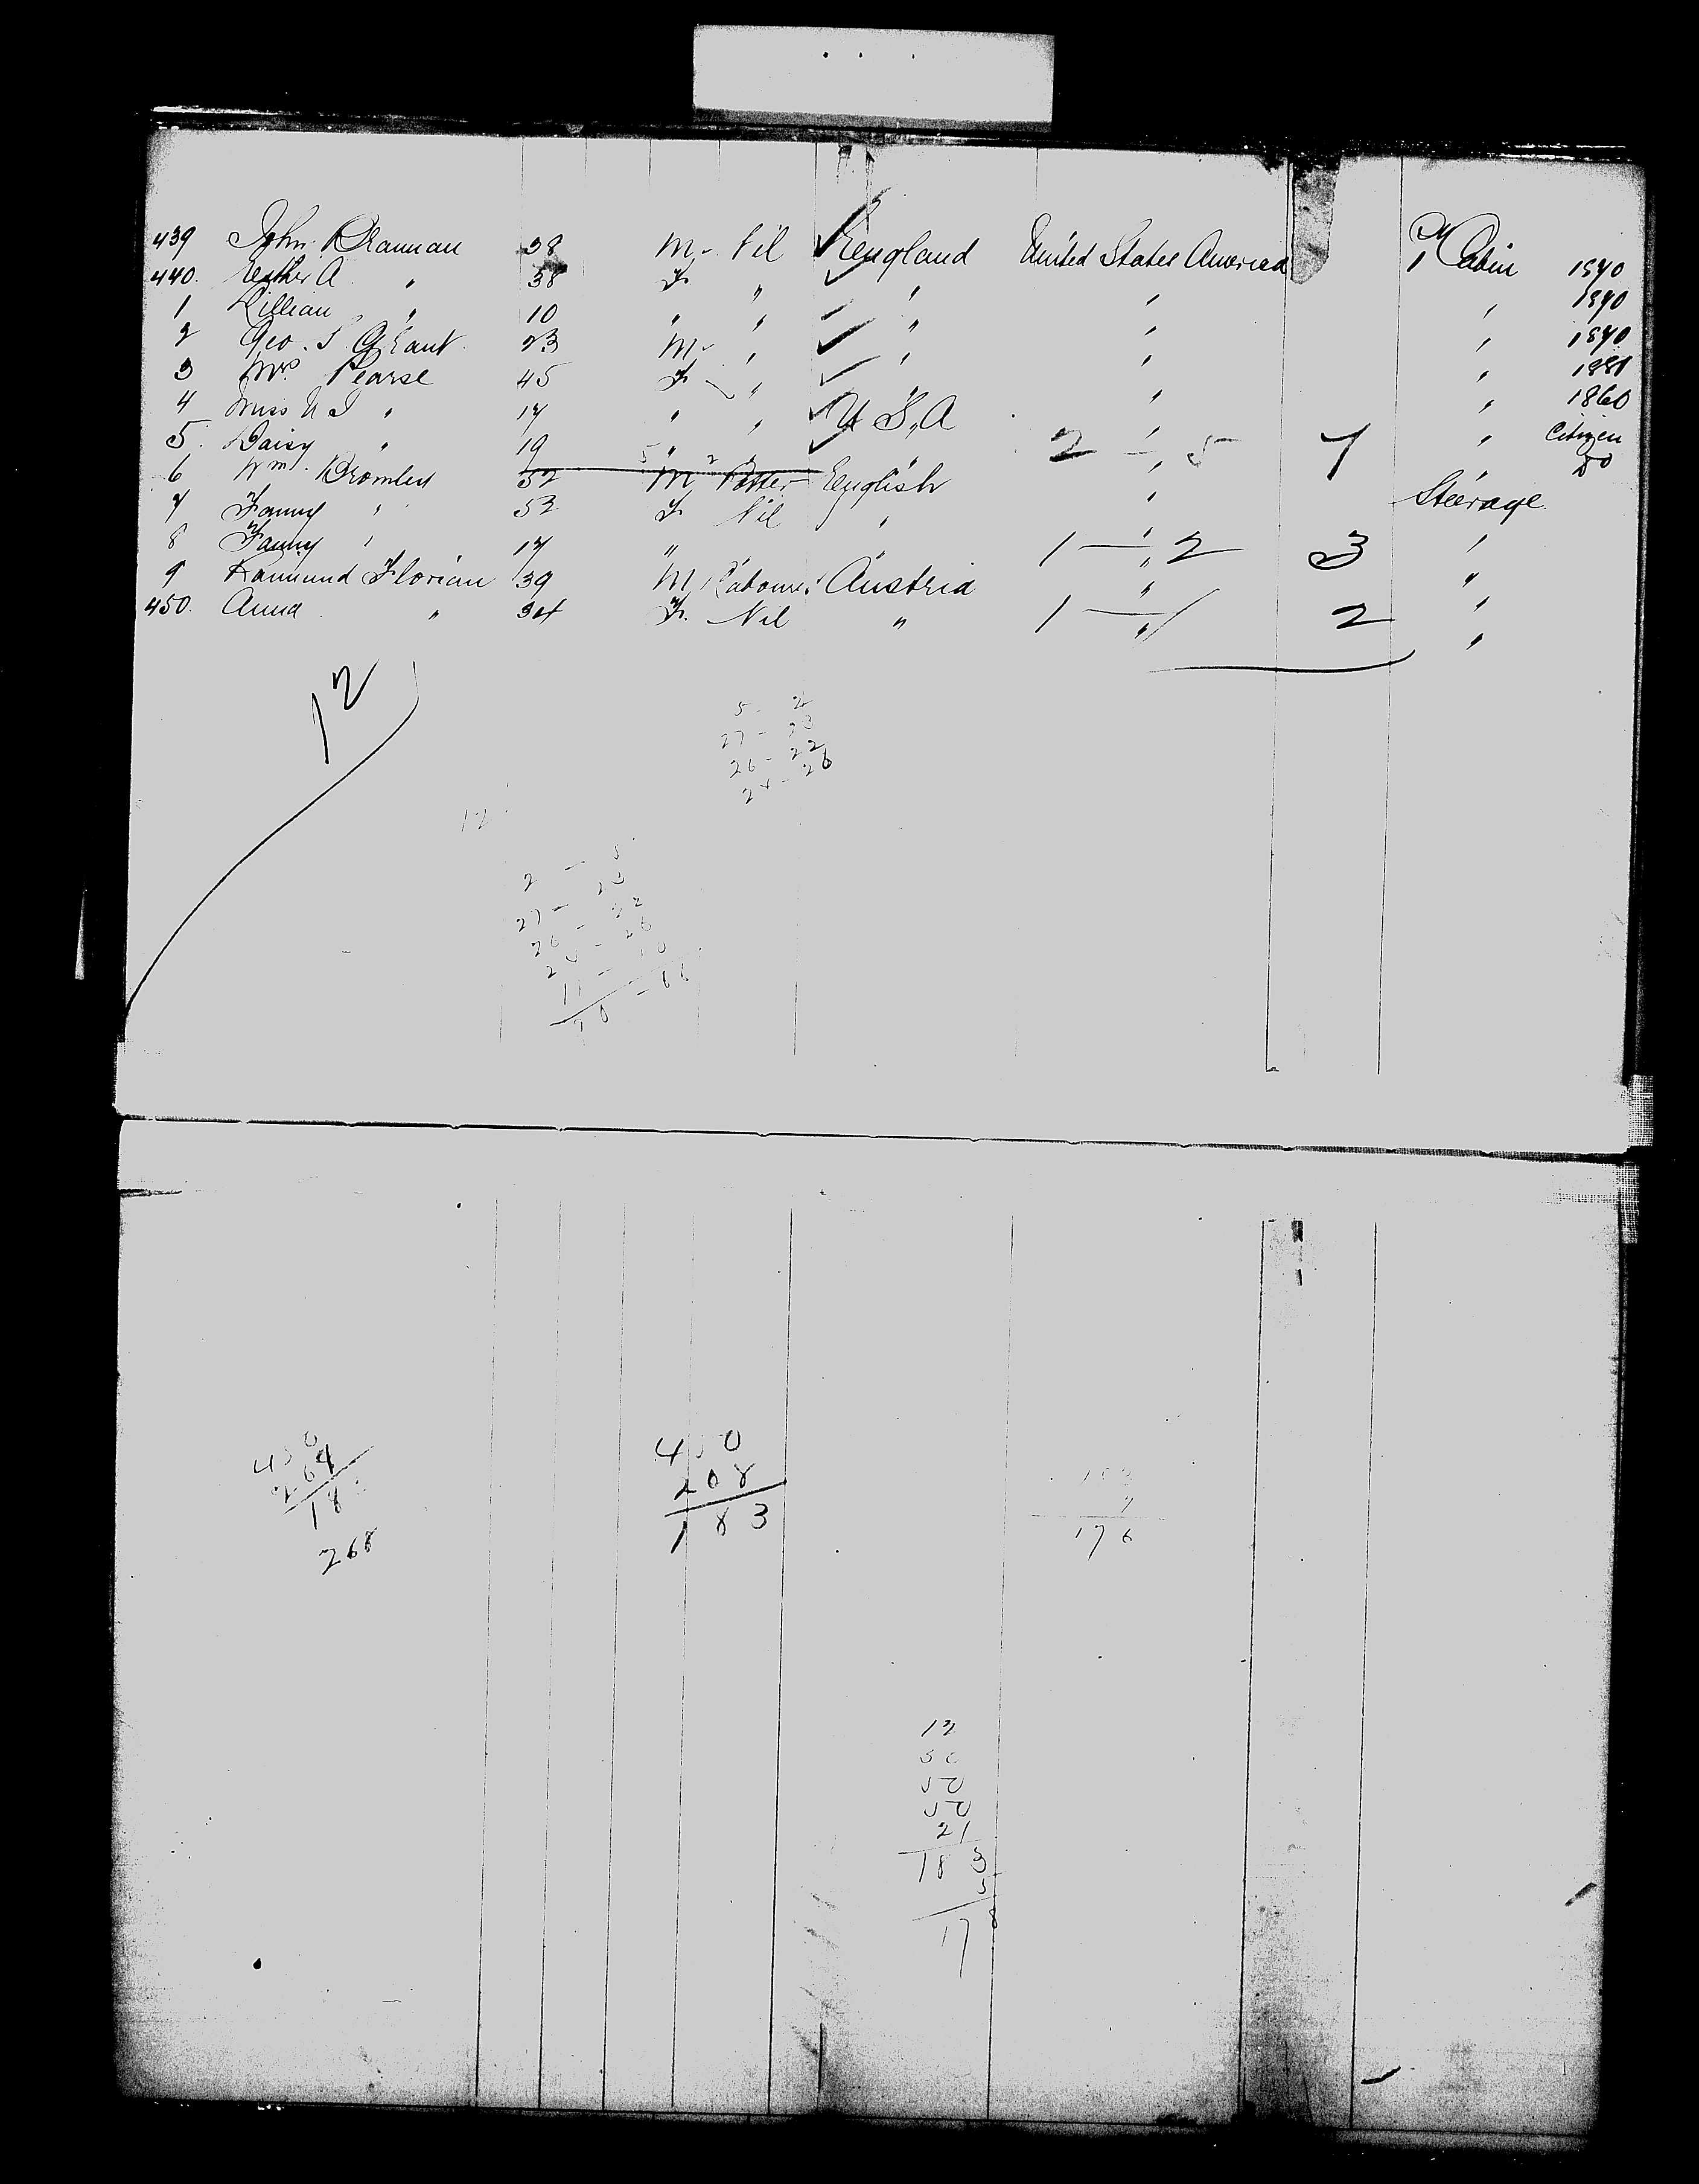 439 John Brannan 38 M - Nil England United States America Cabin 1870
440. Esther A " 38 F " " " " 1870
1 Lillian " 10 " " " " " 1870
2 Geo. S. Grant 23 M - " " " " 1881
3 Mrs Pearse 45 F " " " " 1860
4 Miss " 17 " " U S, A " " Citizen
5. Daisy " 19 " " " 2 - 5 7 " Do
6 Wm Bromley 52 M Potter English " Steerage
7 Fanny " 53 F Nil " " "
8 Fanny " 17 " " " 1 - 2 3 "
9 Florian 39 M Austria " "
450. Anna " 34 F. Nil " 1 - 1 2 "
12
5 - 2
27 - 23
26 - 22
24 - 26
12
2 - 5
27 - 23
26 - 22
24 - 26
11 - 10
450
264
18
268
450
268
183
7
176
12
50
50
50
21
183
5
178